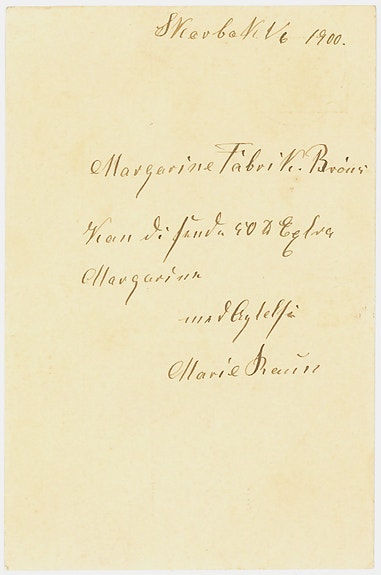 Skærbæk 1/6 1900.
Margarine Fabrik. Bröns
Kan di sende 50 ℔ Extra
Margarine
med Agtelse
Marie Raun